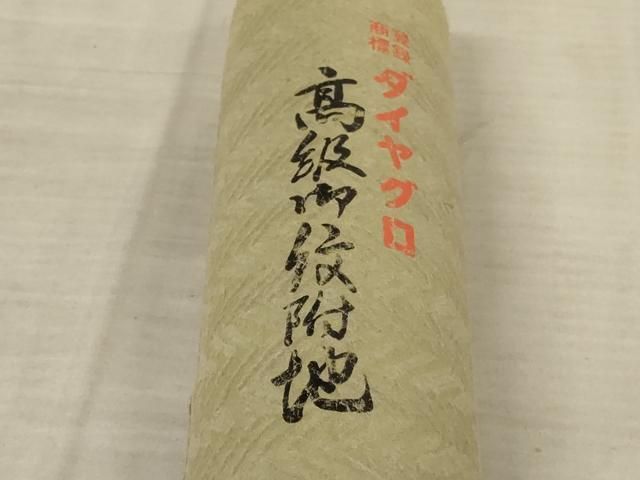 登録商標 ダイヤグロ
高級御紋附地